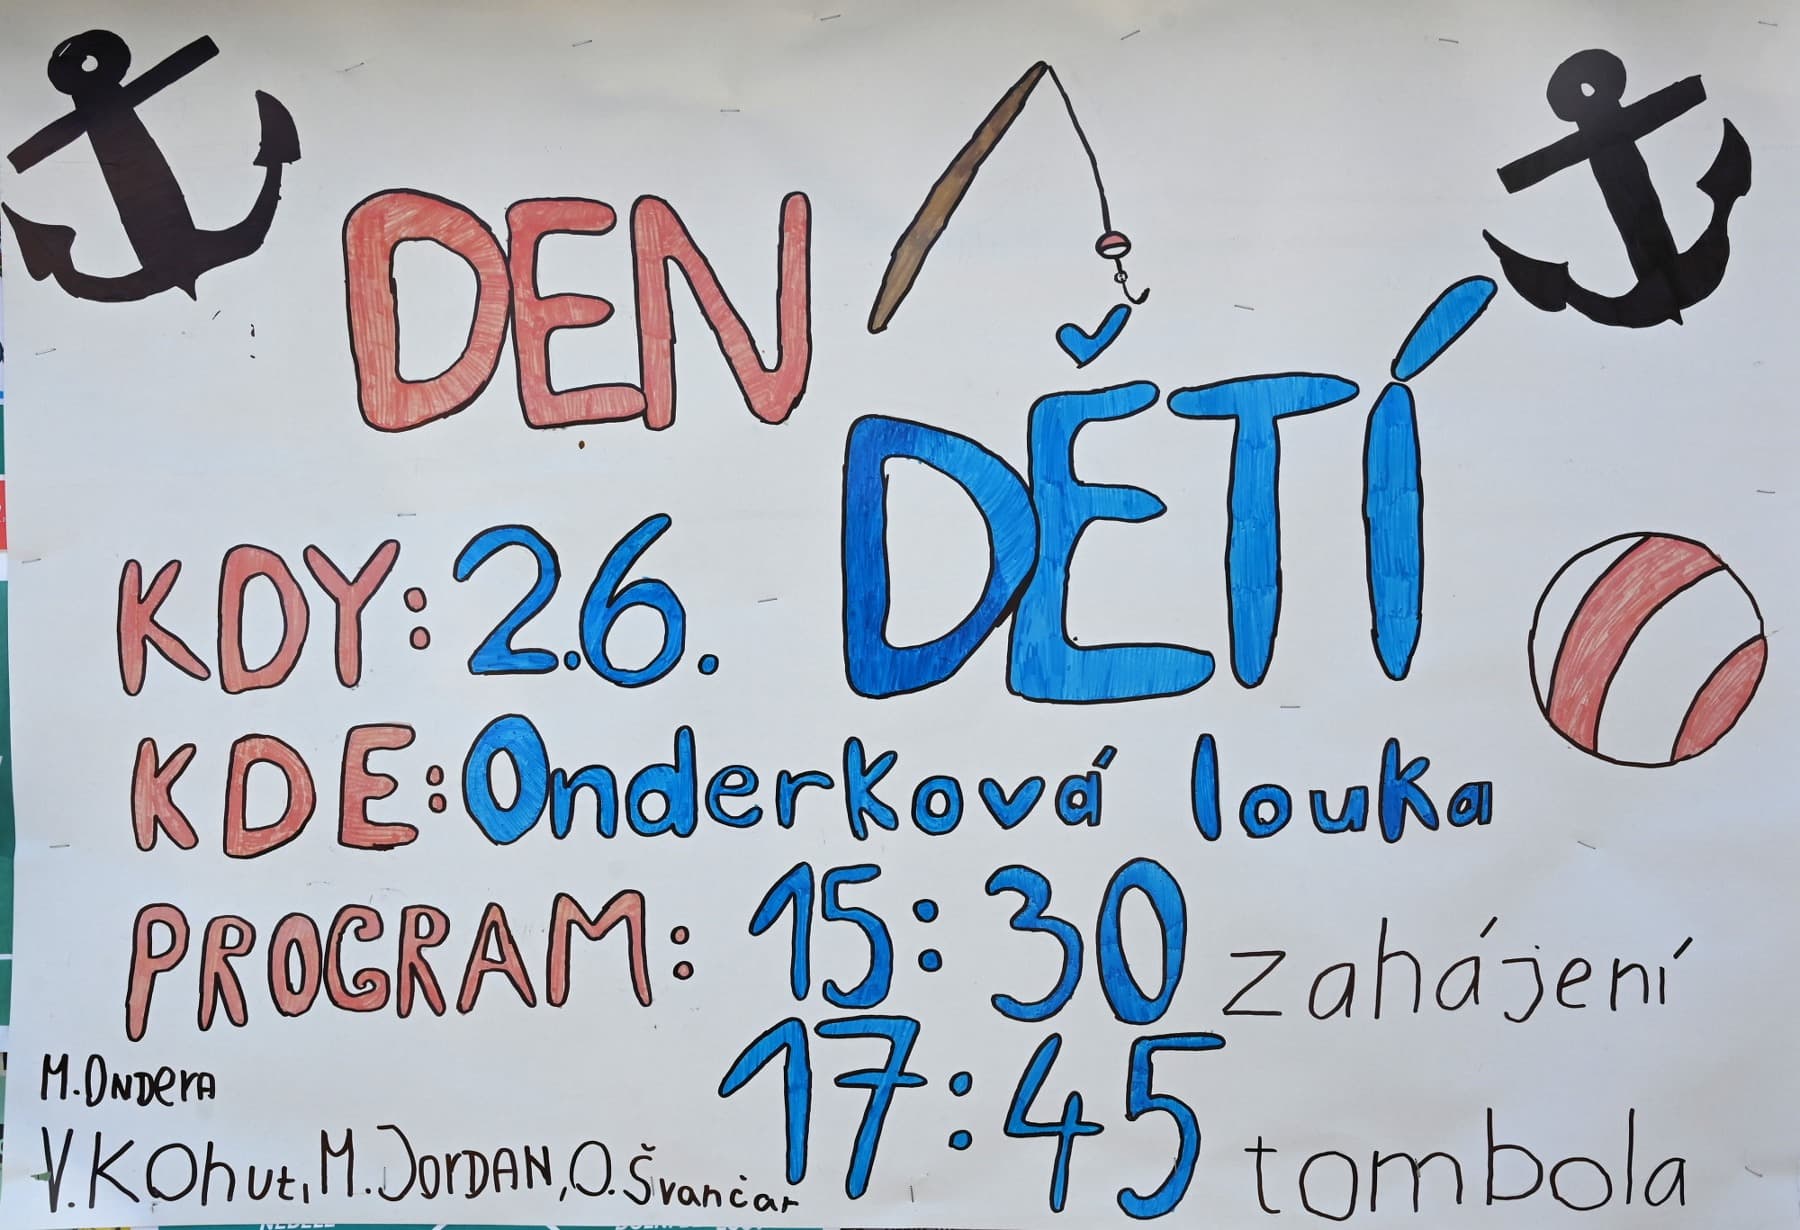 DEN
DĚTÍ
KDY: 2.6.
KDE: Onderková louka
PROGRAM: 15:30 zahájení
17:45 tombola
M. ONDERA
V. KOhut, M. JORDAN, O. Švančar
NEDĚLE